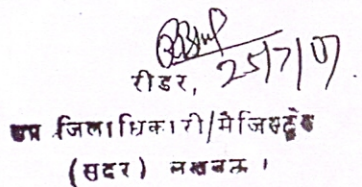 25/7/07
रीडर,
उप जिलाधिकारी/मैजिस्ट्रेट
(सदर) लखनऊ ।